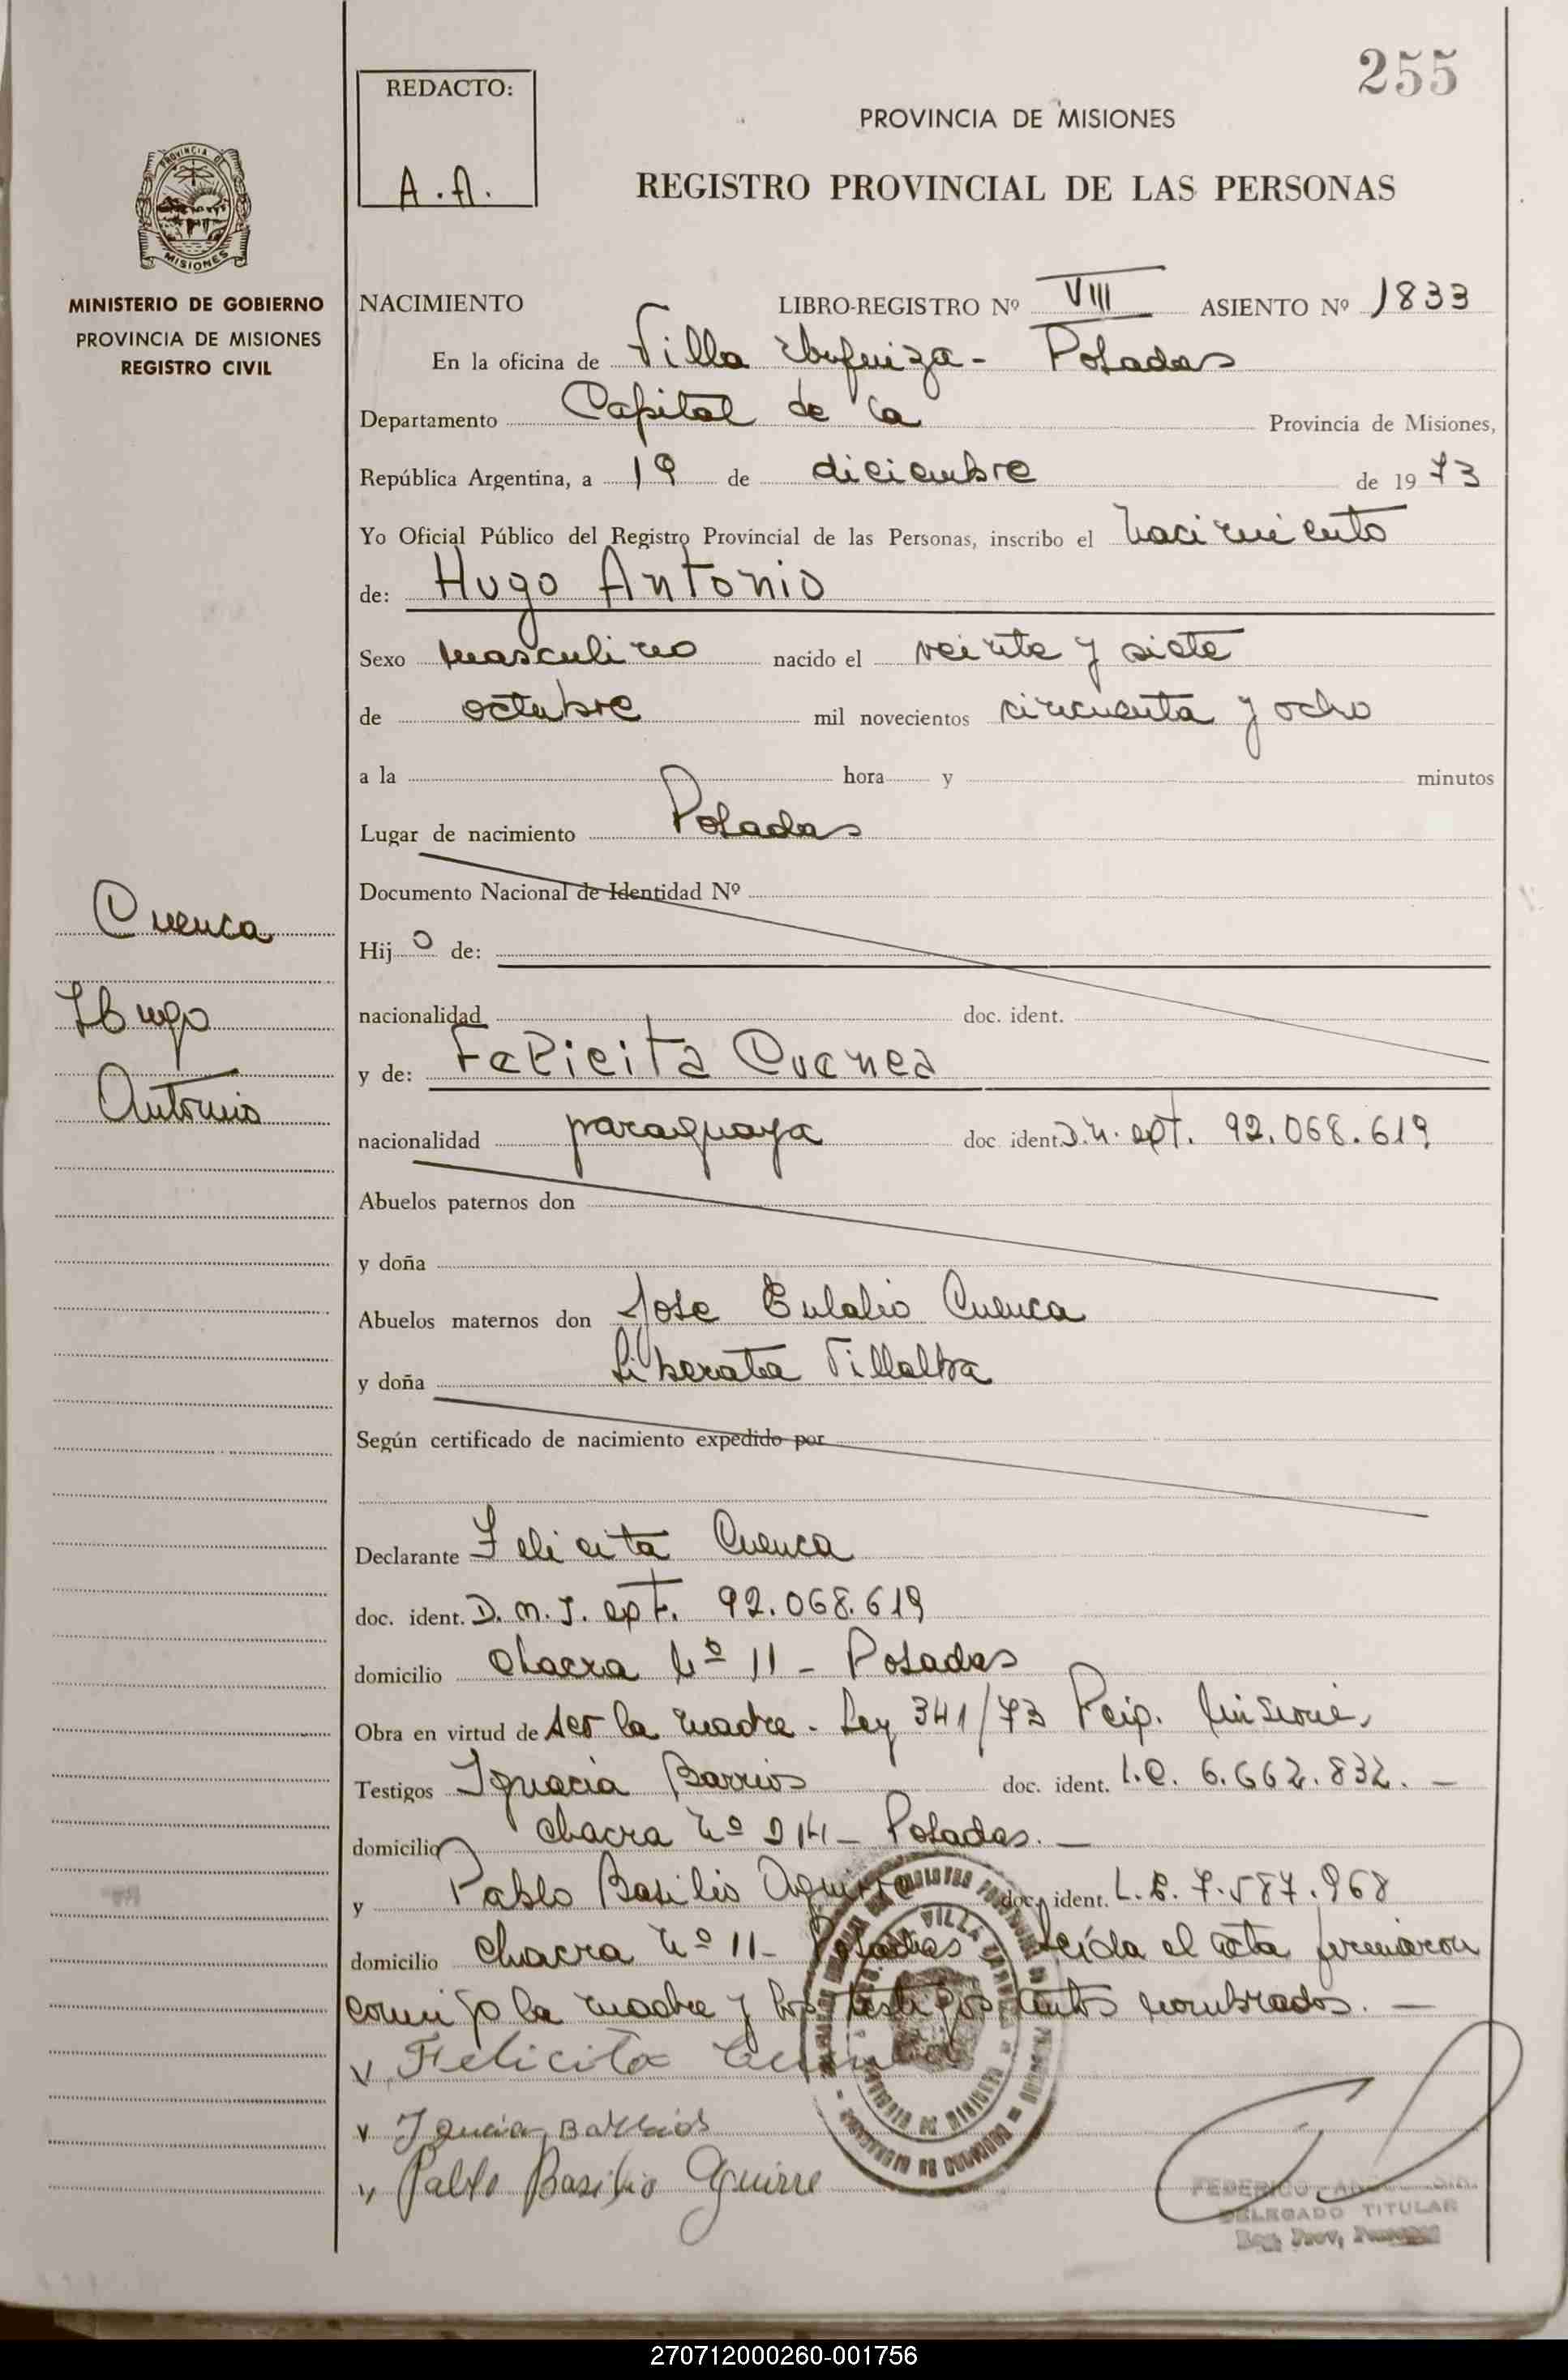 255
REDACTO:
A.A.
PROVINCIA DE MISIONES
REGISTRO PROVINCIAL DE LAS PERSONAS
PROVINCIA DE
MISIONES
MINISTERIO DE GOBIERNO
PROVINCIA DE MISIONES
REGISTRO CIVIL
NACIMIENTO LIBRO-REGISTRO Nº VIII ASIENTO Nº 1833
En la oficina de Villa Urquiza - Posadas
Departamento Capital de la Provincia de Misiones,
República Argentina, a 19 de diciembre de 1973
Yo Oficial Público del Registro Provincial de las Personas, inscribo el nacimiento
de: Hugo Antonio
Sexo masculino nacido el veinte y siete
de octubre mil novecientos cincuenta y ocho
a la hora y minutos
Lugar de nacimiento Posadas
Documento Nacional de Identidad Nº
Cuenca
Hugo
Antonio
Hijo de:
nacionalidad doc. ident.
y de: Felicita Cuenca
nacionalidad paraguaya doc. ident. D.N. ext. 92.068.619
Abuelos paternos don
y doña
Abuelos maternos don Jose Eulalio Cuenca
y doña Liberata Villalba
Según certificado de nacimiento expedido por
Declarante Felicita Cuenca
doc. ident. D.N.I. ext. 92.068.619
domicilio chacra Nº 11 - Posadas
Obra en virtud de ser la madre. Ley 341/73 Pcip. Misione.
Testigos Ignacia Barrios doc. ident. L.C. 6.662.832. -
domicilio chacra Nº 214 - Posadas. -
y Pablo Basilio Aguirre doc. ident. L.E. 7.587.968
domicilio chacra Nº 11 - Posadas Leída el acta firmaron
conmigo la madre y los testigos antes nombrados. -
Felicita Cuenca
Ignacia Barrios
Pablo Basilio Aguirre
FEDERICO
DELEGADO TITULAR
270712000260-001756